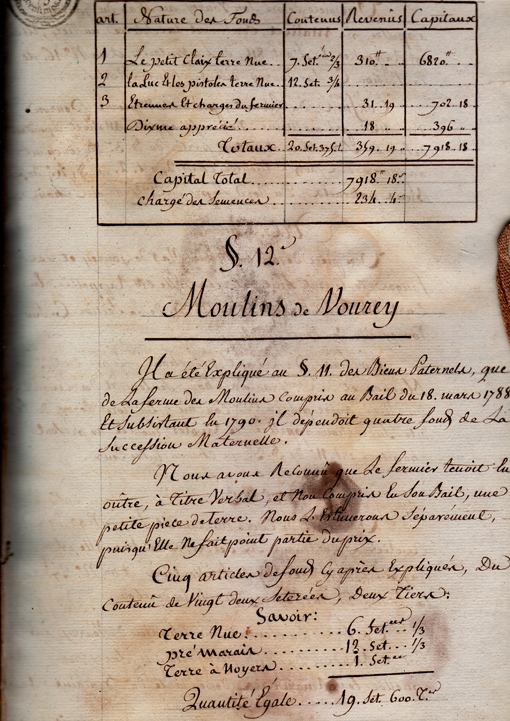 art. Nature des Fonds Contenus Revenus Capitaux
1 Le petit Claix terre Nue. 7. Set. 2/3 310# .. 6820.# ..
2 la Luc Et les pistoles terre Nue. 12. Set. 3/4
3 Etrennes Et charges du fermier 31 .. 19 .. 702 .. 18
Dixme apprécié 18 .. .. 396 ..
Totaux 20. Set. 359 .. 19 .. 7918 .. 18
Capital Total 7918.# 18.s
chargé des Semences 234 .. 4.s
§. 12.e
Moulins de Vourey
Il a été Expliqué au §. 11. des Biens Paternels, que
de La ferme des Moulins Compris au Bail du 18. mars 1788
Et Subsistant en 1790. il dépendoit quatre fonds de La
Succession Maternelle.
Nous avons Reconnu que Le fermier tenoit En
outre, à Titre Verbal, et Non Compris En Son Bail, une
petite piece de terre. Nous L'Estimerons Séparément,
puisqu'Elle Ne fait point partie du prix.
Cinq articles de fonds Cy après Expliqués, Du
Contenu de Vingt deux Seterées, Deux Tiers;
Savoir:
Terre Nue 6. Set.ées 1/3
pré Marais 12. Set. 1/3
Terre à Noyers 1. Set.ée
Quantité Égale 19. Set. 600. T.es